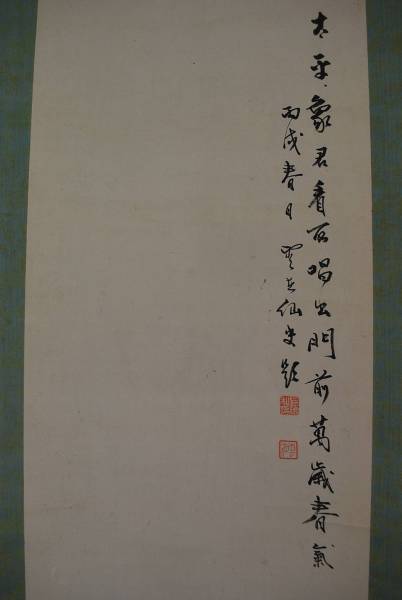 太平、象君看取唱出門前萬歲春氣
丙戌春日 仙史題